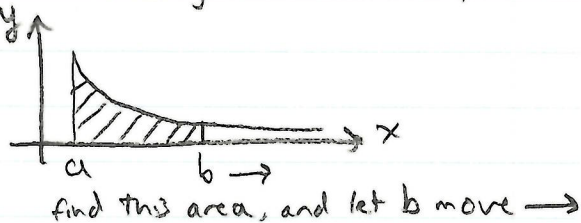 y
x
a
b →
find this area, and let b move →